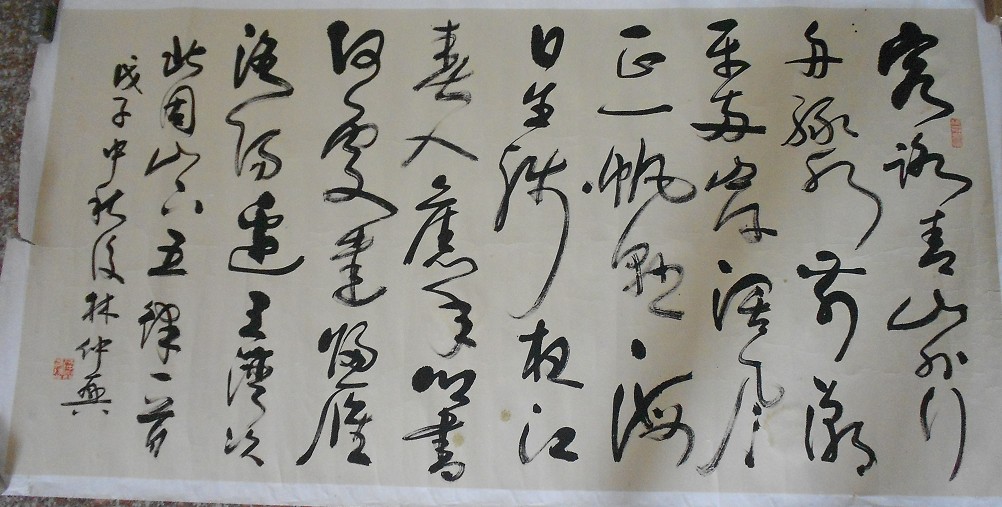 客路青山外行
舟綠水前潮
平兩岸濶風
正一帆懸海
日生殘夜江
春入舊年鄉書
何處達歸雁
洛陽邊王灣次
北固山下五律一首
戊子中秋後林仲興